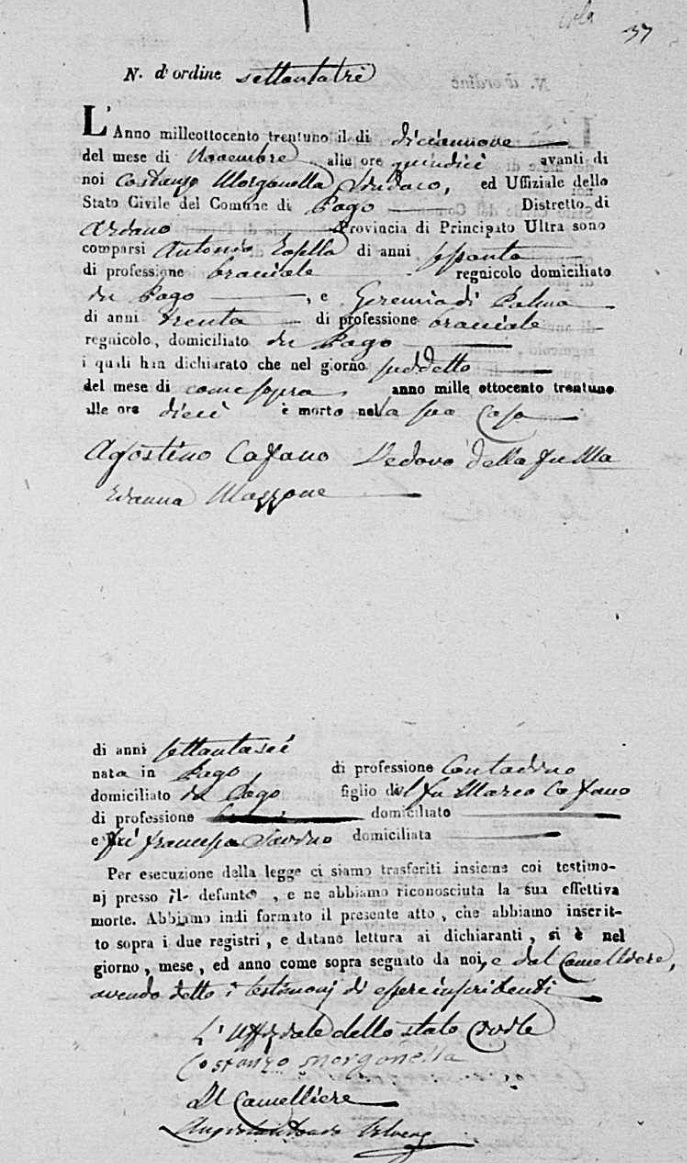 37
N. d'ordine settantatrè
L'Anno milleottocento trentuno il di diciannove
del mese di Novembre alle ore quindici avanti di
noi Costanzo Morganella Sindaco, ed Uffiziale dello
Stato Civile del Comune di Pago Distretto di
Ariano Provincia di Principato Ultra sono
comparsi Antonio di anni
di professione bracciale regnicolo domiciliato
in Pago, e Geremia di Palma
di anni trenta di professione bracciale
regnicolo, domiciliato in Pago
i quali han dichiarato che nel giorno suddetto
del mese di come sopra anno mille ottocento trentuno
alle ore dieci è morto nella sua Casa
Agostino Cafano Vedovo della fu
Mazzone
di anni settantasei
nata in Pago di professione Contadino
domiciliato in Pago figlio del fu Marco Cafano
di professione domiciliato
e fu Francesca domiciliata
Per esecuzione della legge ci siamo trasferiti insieme coi testimo-
nj presso il defunto, e ne abbiamo riconosciuta la sua effettiva
morte. Abbiamo indi formato il presente atto, che abbiamo inscrit-
to sopra i due registri, e datane lettura ai dichiaranti, si è nel
giorno, mese, ed anno come sopra segnato da noi, e dal Camelliere,
avendo detto i testimonj di essere
L'Uffiziale dello stato Civile
Costanzo Morganella
Il Camelliere